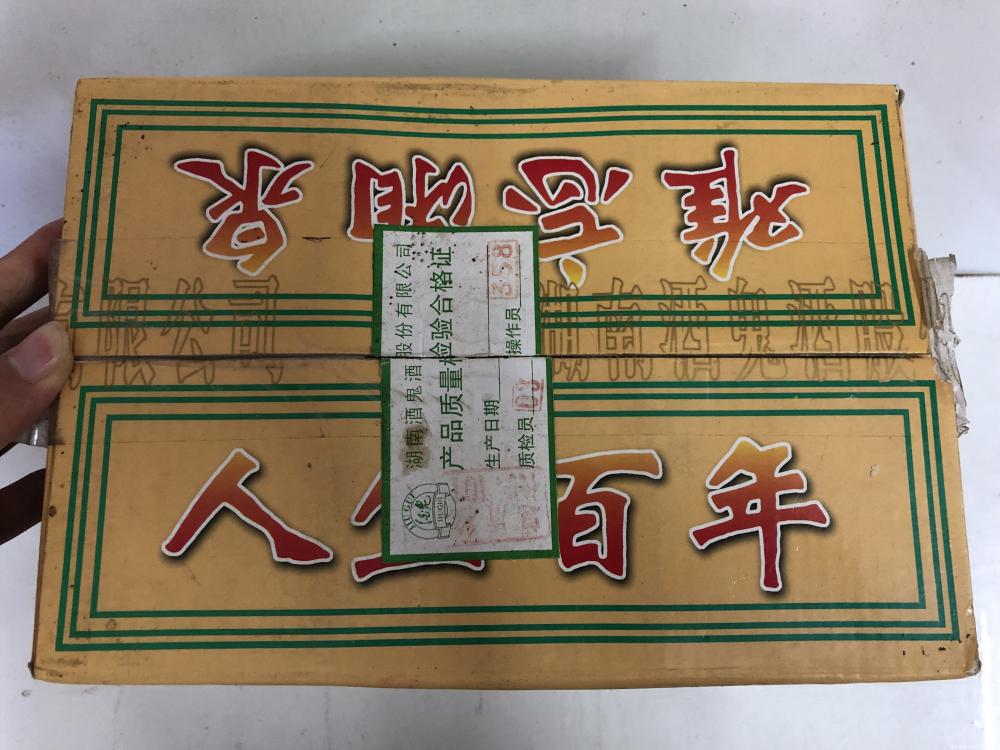 难忘湘泉
人生百年
湖南酒鬼酒股份有限公司
产品质量检验合格证
生产日期
质检员 03 操作员 358
JIUGUI
湖南酒鬼酒股
限公司